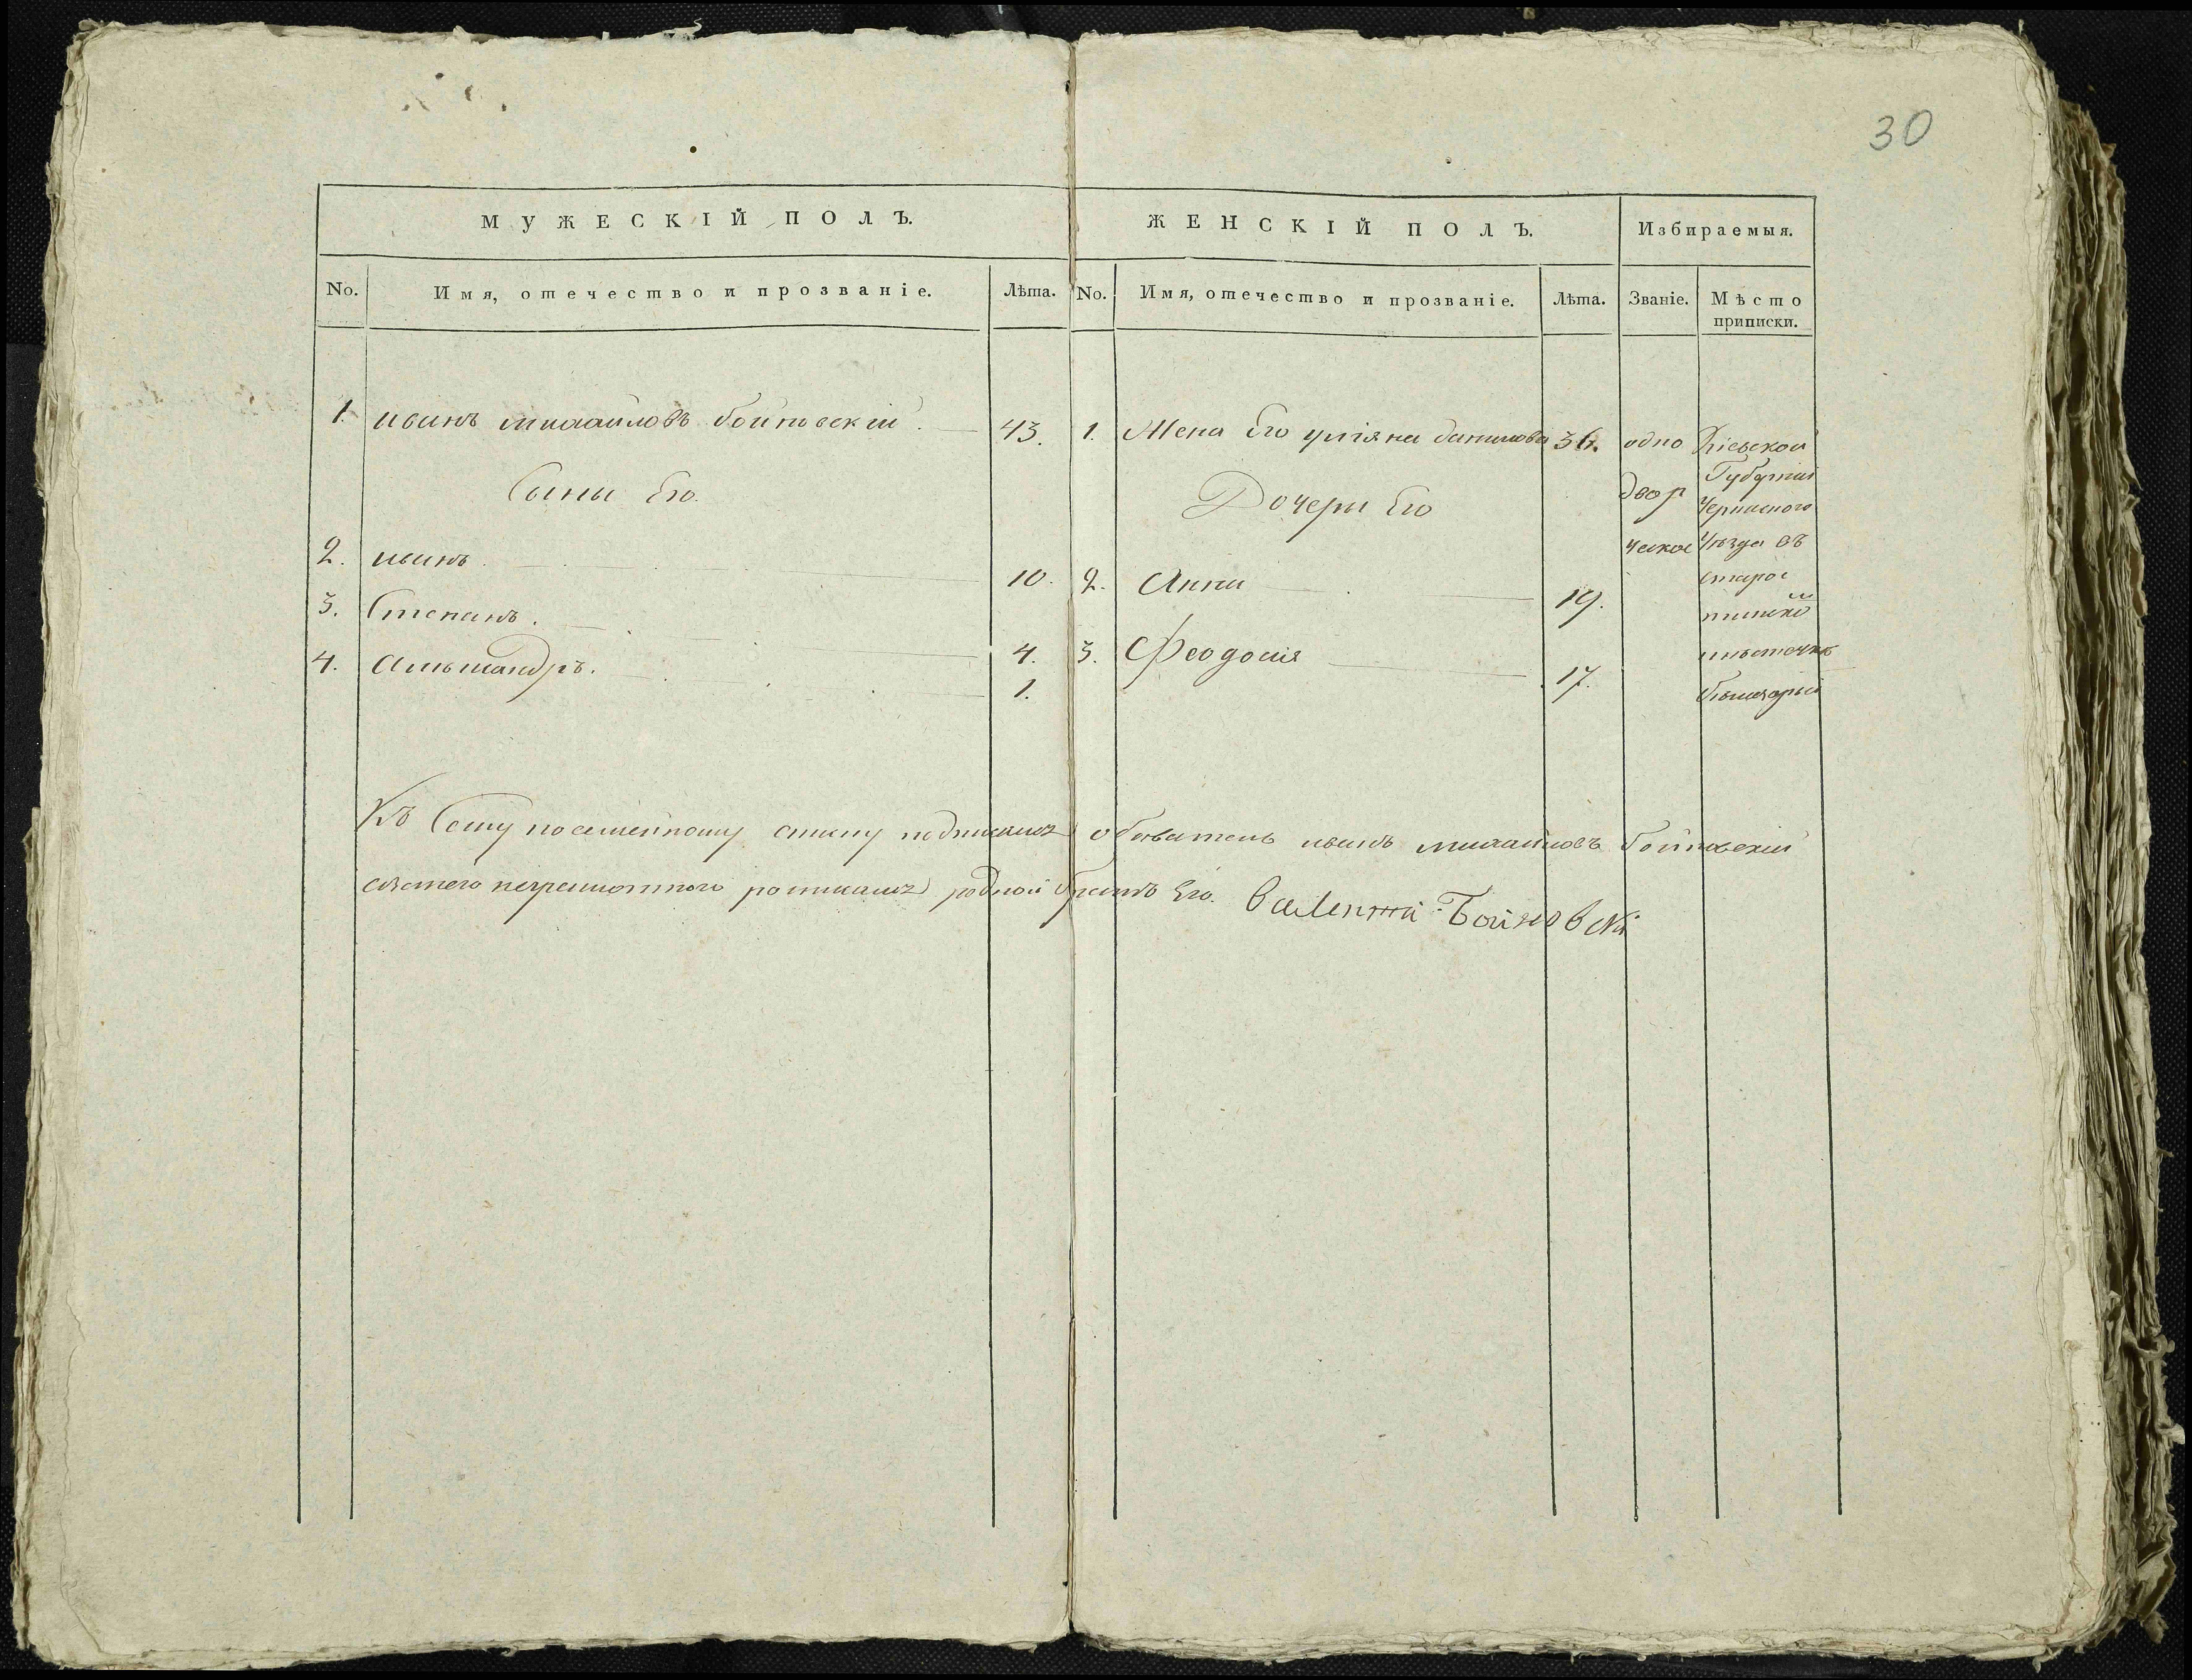 30
МУЖЕСКІЙ ПОЛЪ.
ЖЕНСКІЙ ПОЛЪ.
Избираемыя.
No.
Имя, отечество и прозваніе.
Лѣта.
No.
Имя, отечество и прозваніе.
Лѣта.
Званіе.
Мѣсто
приписки.
1. иванъ михайловъ бойновскій. 43.
Сыны Его.
2. иванъ. 10.
3. Степанъ. 4.
4. Александръ. 1.
1. Жена Его уліяна данилова 36.
Дочери Его
2. Анна 19.
3. Феодосія 17.
одно
двор
ческое
Кіевской
Губерніи
уѣзда въ
мѣстечкѣ
Къ Сему посемейному списку подписался обыватель иванъ михайловъ бойновскій
вместо неграмотного росписался родной братъ Его. Валентій Бойновскі